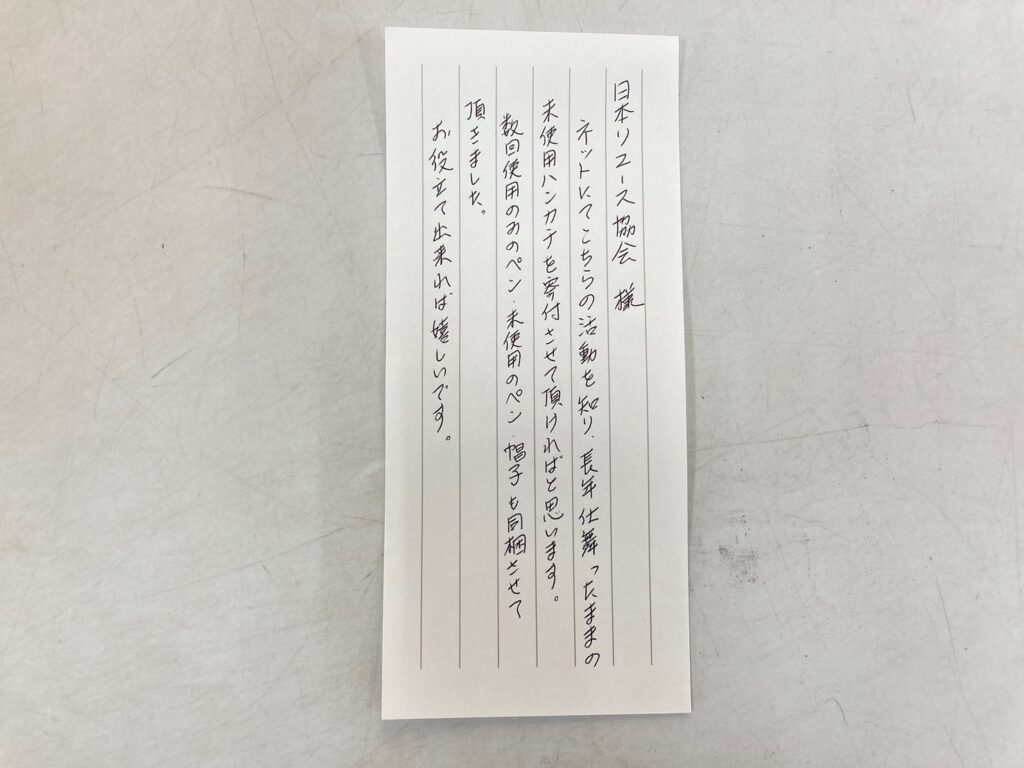 日本リユース協会 様
ネットにてこちらの活動を知り、長年仕舞ったままの
未使用ハンカチを寄付させて頂ければと思います。
数回使用のみのペン・未使用のペン・帽子も同梱させて
頂きました。
お役立て出来れば嬉しいです。